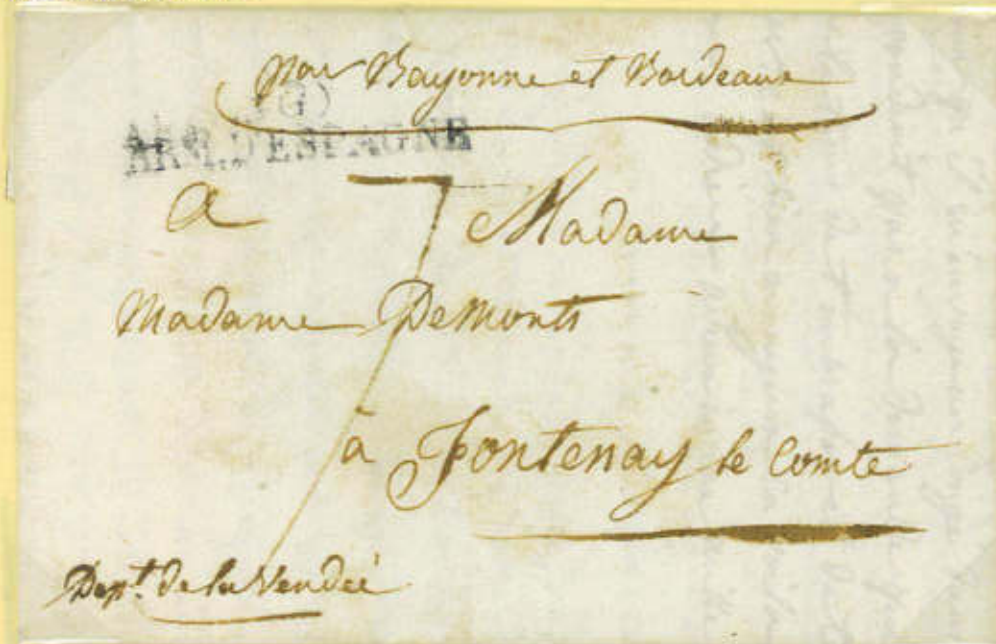 par Bayonne et Bordeaux
(G)
ARM. D'ESPAGNE
a Madame
7
Madame Demonts
à Fontenay le Comte
Dept. de la Vendéé